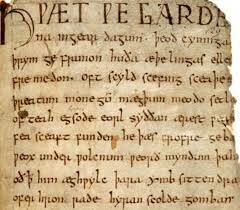 HǷÆT ǷE GARDE
na ingear dagum þeod cyninga
þrym ge frunon huða æþelingas elle
fremedon. oft scyld scefing sceaþe
þreatum monegū mægþum meodo setl
of teah egsode eorl syððan ærest ƿear
fea sceaft funden he þæs frofre geba
ƿeox under ƿolcnum ƿeorð myndum þah
oð ꝥ him æghƿylc þara ymb sittendra
ofer hron rade hyran scolde gomban